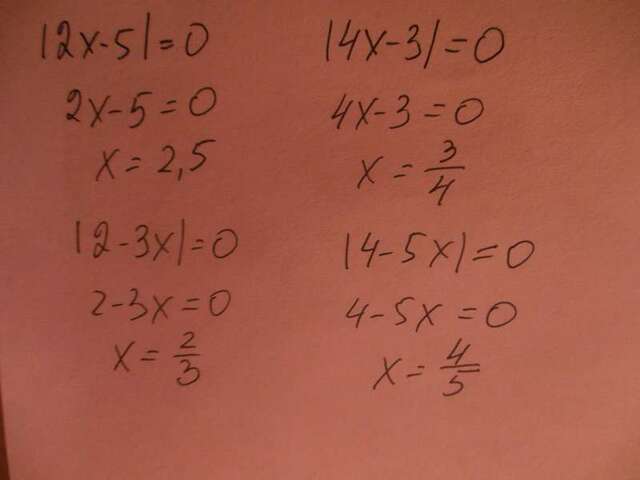 |2x-5|=0
2x-5=0
x=2,5
|4x-3|=0
4x-3=0
x=3/4
|2-3x|=0
2-3x=0
x=2/3
|4-5x|=0
4-5x=0
x=4/5